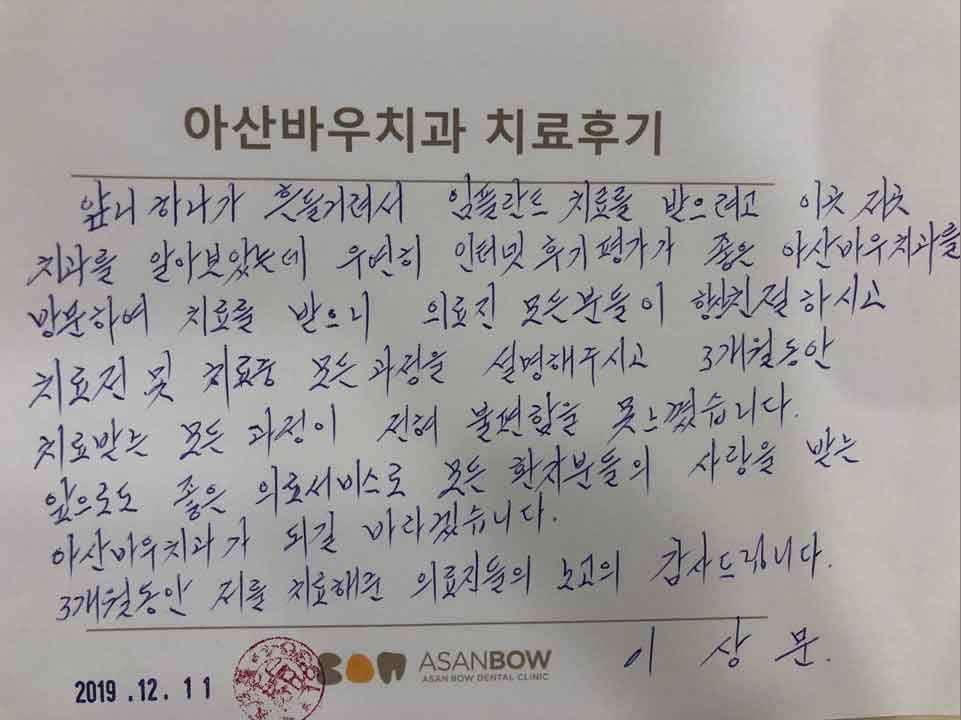 아산바우치과 치료후기
앞니 하나가 흔들거려서 임플란트 치료를 받으려고 이곳 저곳
치과를 알아보았는데 우연히 인터넷 후기평가가 좋은 아산바우치과를
방문하여 치료를 받으니 의료진 모든분들이 항상친절하시고
치료전 및 치료중 모든과정을 설명해주시고 3개월동안
치료받는 모든 과정이 전혀 불편함을 못느꼈습니다.
앞으로도 좋은 의료서비스로 모든 환자분들의 사랑을 받는
아산바우치과가 되길 바라겠습니다.
3개월동안 저를 치료해준 의료진들의 노고의 감사드립니다.
이 상 문.
BOW ASANBOW
ASAN BOW DENTAL CLINIC
2019.12.11